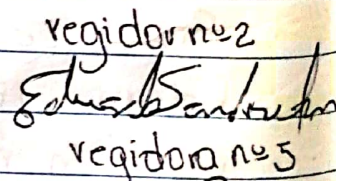 regidor nº 2
Eduardo
regidora nº 5